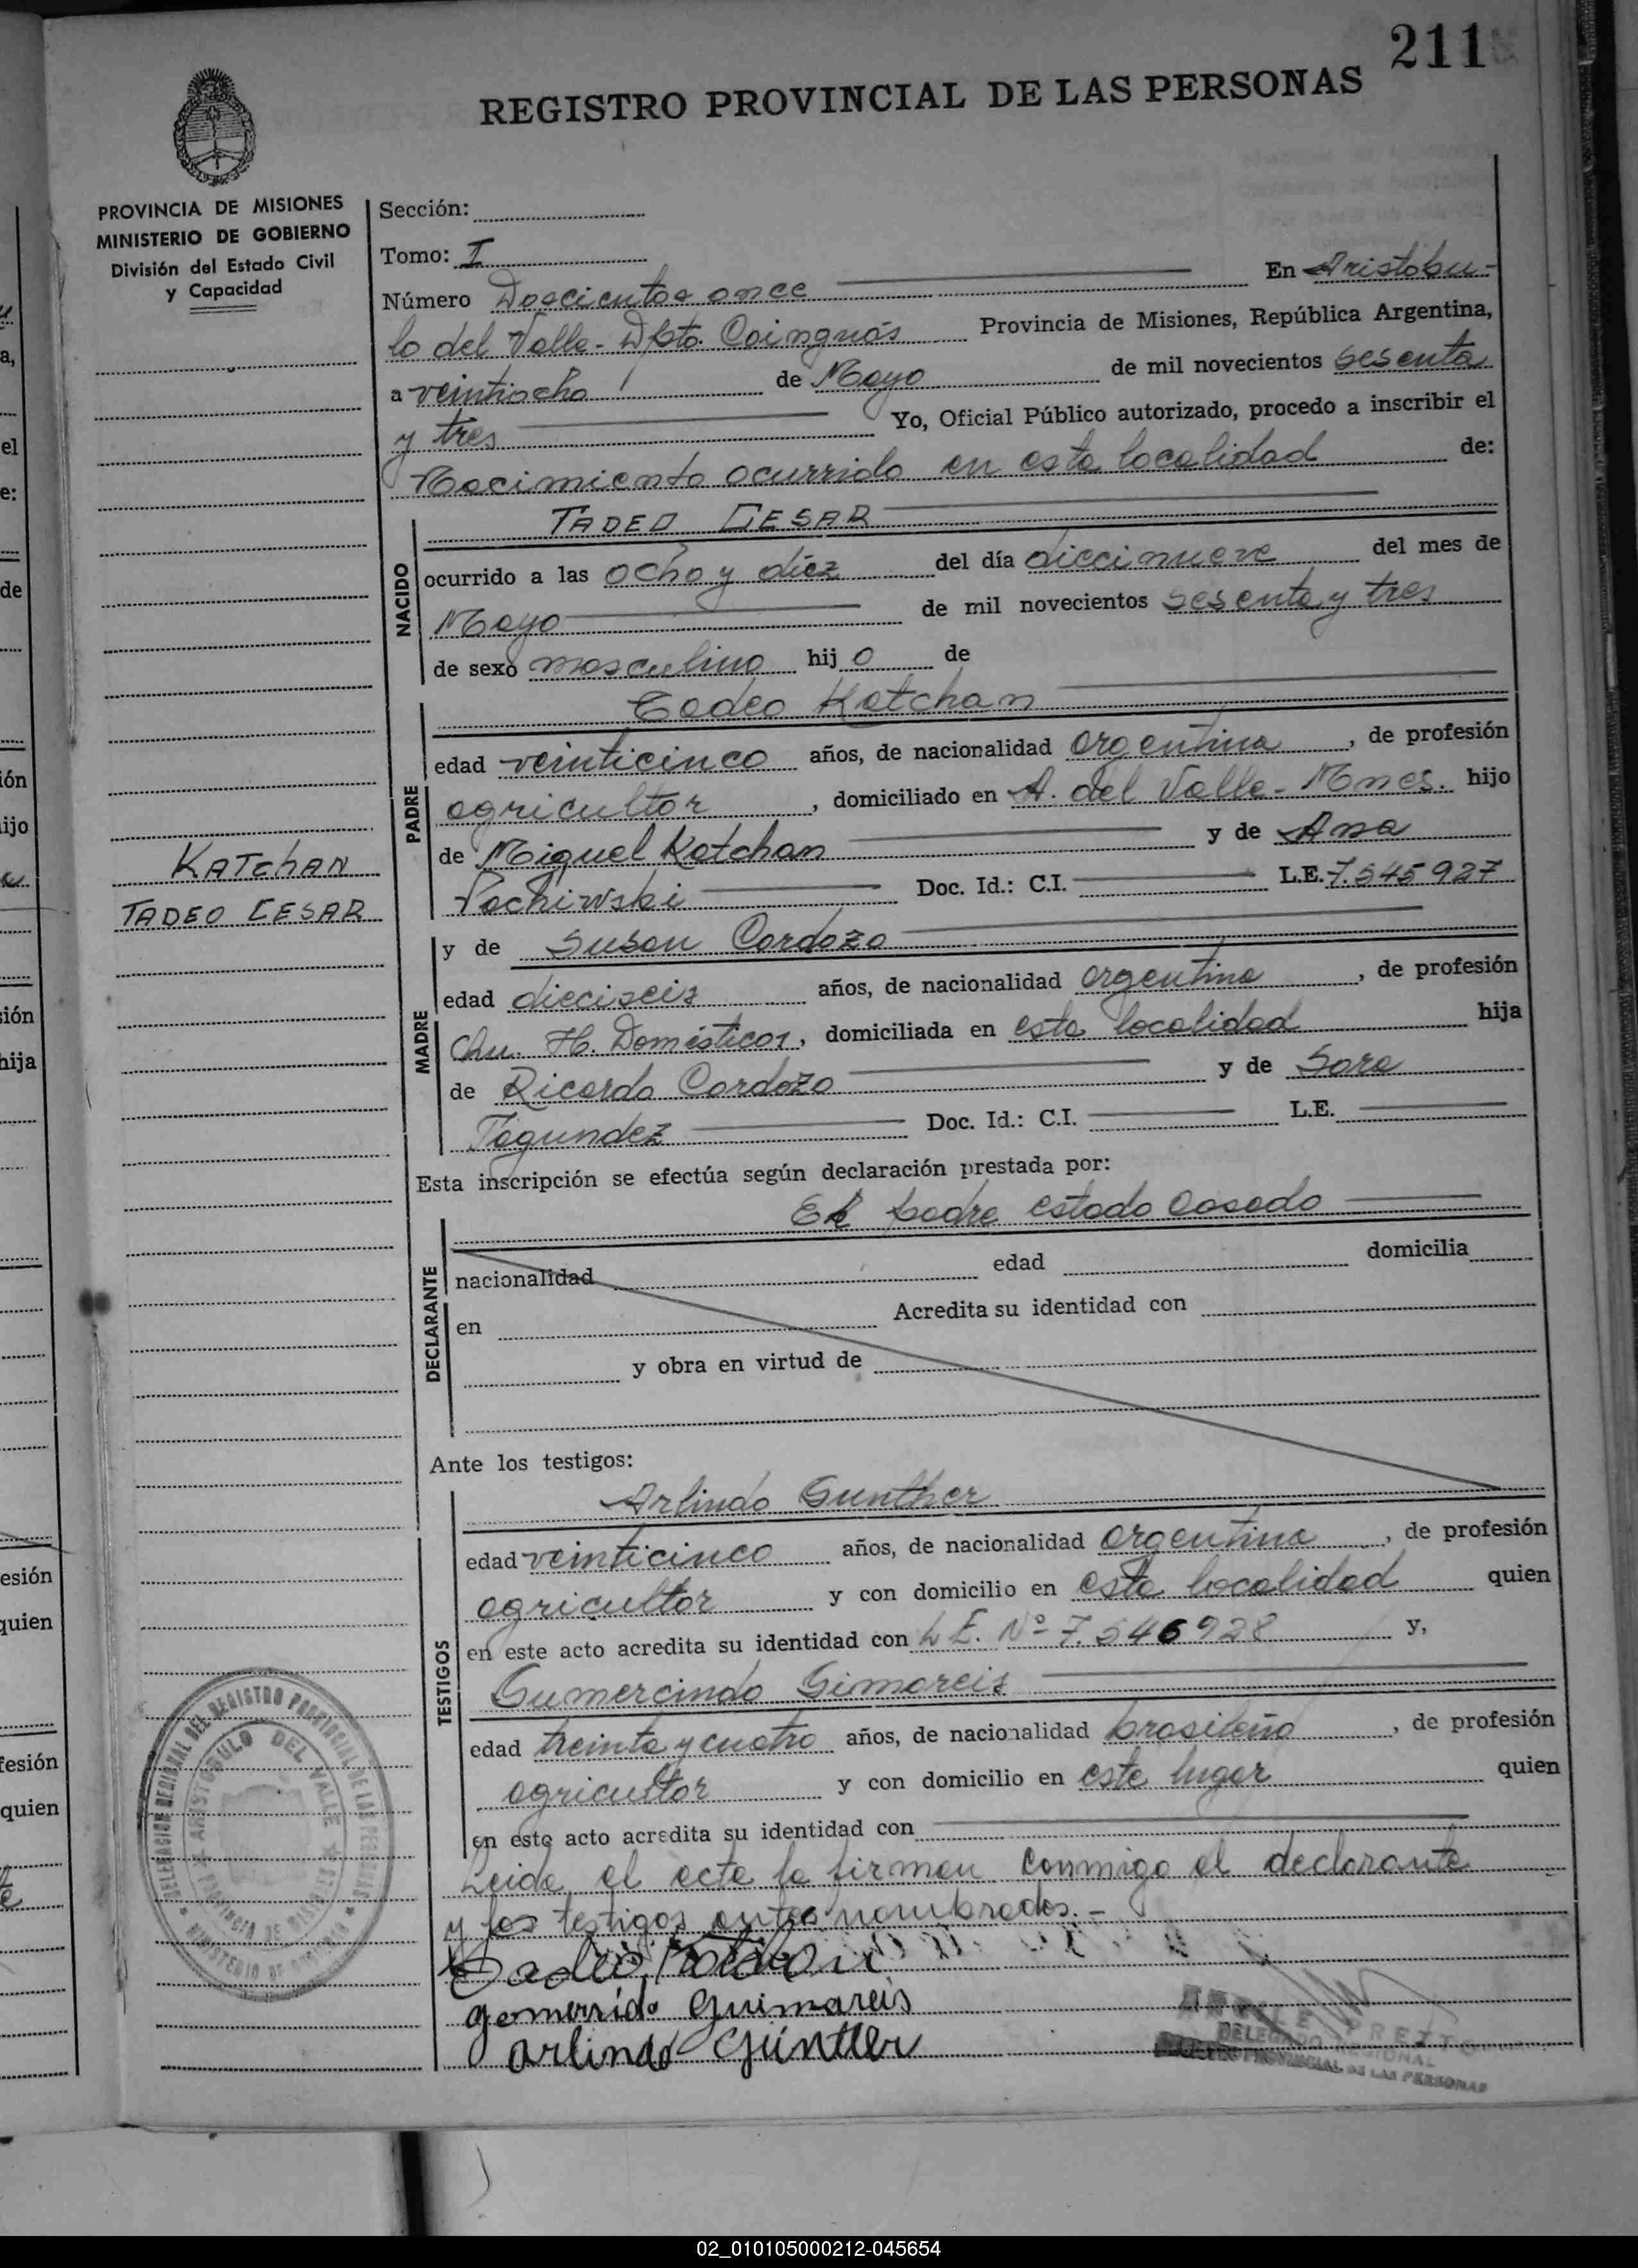 211
REGISTRO PROVINCIAL DE LAS PERSONAS
PROVINCIA DE MISIONES
MINISTERIO DE GOBIERNO
División del Estado Civil
y Capacidad
KATChAN
TADEO CESAR
Sección:
Tomo: I
Número Doscientos once En Aristobu-
lo del Valle - Dpto. Cainguás Provincia de Misiones, República Argentina,
a veintiocho de Mayo de mil novecientos sesenta
y tres Yo, Oficial Público autorizado, procedo a inscribir el
Nacimiento ocurrido en esta localidad de:
NACIDO
TADEO CESAR
ocurrido a las ocho y diez del día diecinueve del mes de
Mayo de mil novecientos sesenta y tres
de sexo masculino hij o de
PADRE
Tadeo Katchan
edad veinticinco años, de nacionalidad argentina, de profesión
agricultor, domiciliado en A. del Valle - Mnes. hijo
de Miguel Katchan y de Ana
Doc. Id.: C.I. L.E. 7.545927
MADRE
y de Susan Cardozo
edad dieciseis años, de nacionalidad argentina, de profesión
H. Domésticos, domiciliada en esta localidad hija
de Ricardo Cardozo y de Sara
Fagundez Doc. Id.: C.I. L.E.
Esta inscripción se efectúa según declaración prestada por:
DECLARANTE
El padre estado casado
nacionalidad edad domicilia
en Acredita su identidad con
y obra en virtud de
Ante los testigos:
TESTIGOS
Arlindo Gunther
edad veinticinco años, de nacionalidad argentina, de profesión
agricultor y con domicilio en esta localidad quien
en este acto acredita su identidad con L.E. Nº 7.546928 y,
Gumercindo Gimareis
edad treinta y cuatro años, de nacionalidad brasileña, de profesión
agricultor y con domicilio en este lugar quien
en este acto acredita su identidad con
Leida el acta la firman conmigo el declarante
y los testigos antes nombrados. -
gomersido guimareis
arlindo Günther
DELEGACION REGIONAL DEL REGISTRO PROVINCIAL DE LAS PERSONAS
ARISTOBULO DEL VALLE
PROVINCIA DE MISIONES
MINISTERIO DE GOBIERNO
DELEGADO REGIONAL
REGISTRO PROVINCIAL DE LAS PERSONAS
02_010105000212-045654